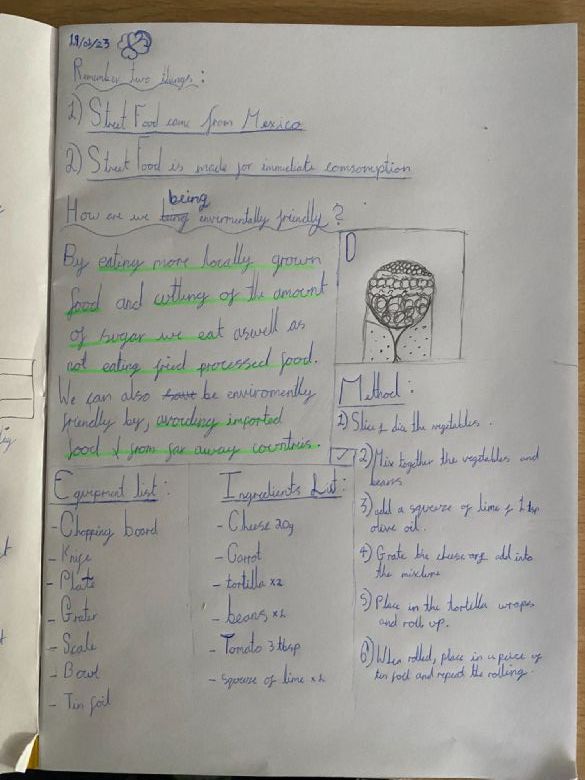 19/01/23
Remember two things:
1) Street Food came from Mexico
2) Street Food is made for immediate comsomption
being
How are we being envirmentally friendly?
By eating more locally grown
food and cutting of the amount
of sugar we eat aswell as
not eating fried processed food.
We can also have be enviromently
friendly by, avoiding imported
food & from far away countries.
Equipment list:
- Chopping board
- Knife
- Plate
- Grater
- Scale
- Bowl
- Tin foil
Ingredients List:
- Cheese 20g
- Carrot
- tortilla x2
- beans x1
- Tomato 3 tbsp
- squeeze of lime x1
Method:
1) Slice & dice the vegetables.
2) Mix together the vegetables and
beans
3) add a squeeze of lime & 1 tsp
olive oil.
4) Grate the cheese and add into
the mixture
5) Place in the tortilla wraps
and roll up.
6) When rolled, place in a peice of
tin foil and repeat the rolling.